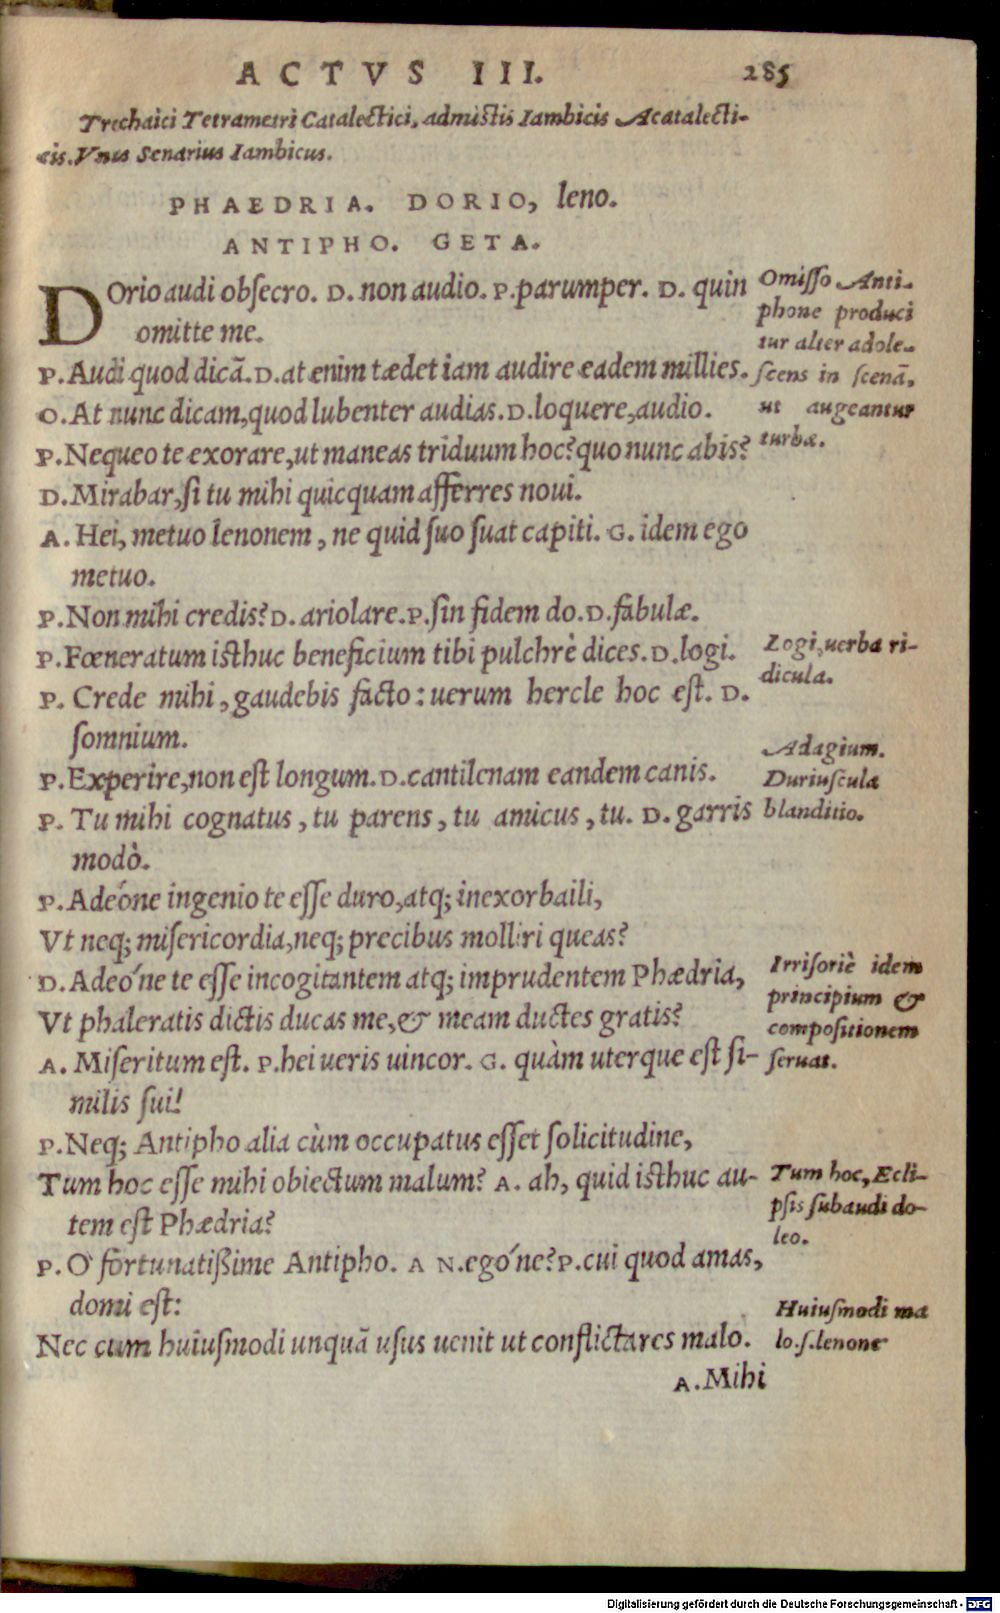 ACTVS III. 285
Trochaici Tetrametri Catalectici, admistis Iambicis Acatalecti-
cis. Vnus Senarius Iambicus.
PHAEDRIA. DORIO, leno.
ANTIPHO. GETA.
DOrio audi obsecro. D. non audio. P. parumper. D. quin
omitte me.
P. Audi quod dicã. D. at enim tædet iam audire eadem millies.
O. At nunc dicam, quod lubenter audias. D. loquere, audio.
P. Nequeo te exorare, ut maneas triduum hoc? quo nunc abis?
D. Mirabar, si tu mihi quicquam afferres noui.
A. Hei, metuo lenonem, ne quid suo suat capiti. G. idem ego
metuo.
P. Non mihi credis? D. ariolare. P. sin fidem do. D. fabulæ.
P. Fœneratum isthuc beneficium tibi pulchrè dices. D. logi.
P. Crede mihi, gaudebis facto: uerum hercle hoc est. D.
somnium.
P. Experire, non est longum. D. cantilenam eandem canis.
P. Tu mihi cognatus, tu parens, tu amicus, tu. D. garris
modò.
P. Adeóne ingenio te esse duro, atq; inexorbaili,
Vt neq; misericordia, neq; precibus molliri queas?
D. Adeóne te esse incogitantem atq; imprudentem Phædria,
Vt phaleratis dictis ducas me, & meam ductes gratis?
A. Miseritum est. P. hei ueris uincor. G. quàm uterque est si-
milis sui!
P. Neq; Antipho alia cùm occupatus esset solicitudine,
Tum hoc esse mihi obiectum malum? A. ah, quid isthuc au-
tem est Phædria?
P. O fortunatißime Antipho. A N. egóne? P. cui quod amas,
domi est:
Nec cum huiusmodi unquã usus uenit ut conflictares malo.
A. Mihi
Omisso Anti-
phone produci
tur alter adole-
scens in scenã,
ut augeantur
turbæ.
Logi, uerba ri-
dicula.
Adagium.
Duriuscula
blanditio.
Irrisoriè idem
principium &
compositionem
seruat.
Tum hoc, Ecli-
psis subaudi do-
leo.
Huiusmodi ma
lo. s. lenone
Digitalisierung gefördert durch die Deutsche Forschungsgemeinschaft - DFG